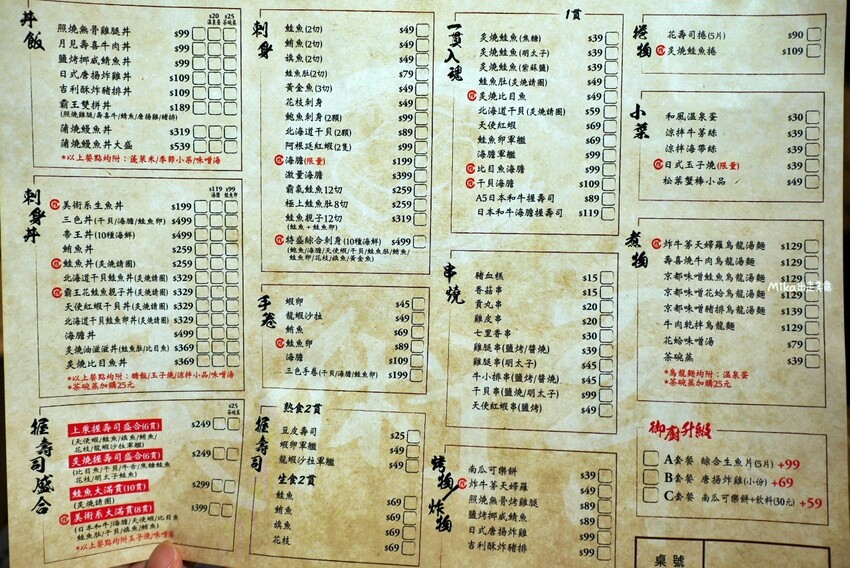 丼飯
$20 $25
溫泉蛋 茶碗蒸
照燒無骨雞腿丼 $99
月見壽喜牛肉丼 $99
鹽烤挪威鯖魚丼 $99
日式唐揚炸雞丼 $109
吉利酥炸豬排丼 $109
霸王雙拼丼 $189
(照燒雞腿/壽喜牛/鯖魚/唐揚雞/豬排)
蒲燒鰻魚丼 $319
蒲燒鰻魚丼大盛 $539
*以上餐點均附:蓬萊米/季節小菜/味噌湯
刺身丼
$119 $99
海膽 鮭魚卵
美術系生魚丼 $199
三色丼(干貝/海膽/鮭魚卵) $499
帝王丼(10種海鮮) $499
鮪魚丼 $259
鮭魚丼(炙燒請圈) $259
北海道干貝鮭魚丼(炙燒請圈) $329
霸王花鮭魚親子丼(炙燒請圈) $369
天使紅蝦干貝丼(炙燒請圈) $329
北海道干貝鮭魚卵丼(炙燒請圈) $329
海膽丼 $499
炙燒油滋滋丼(鮭魚肚/比目魚) $369
炙燒比目魚丼 $369
*以上餐點均附:醋飯/玉子燒/涼拌小品/味噌湯
*茶碗蒸加購25元
握壽司盛合
$25
茶碗蒸
上泉握壽司盛合(6貫) $249
(天使蝦/鮭魚/旗魚/鮪魚/
花枝/龍蝦沙拉軍艦)
炙燒握壽司盛合(6貫) $249
(比目魚/干貝/牛舌/焦糖鮭魚
花枝/明太子鮭魚)
鮭魚大滿貫(10貫) $299
(炙燒請圈)
美術系大滿貫(8貫) $399
(日本和牛/海膽/天使蝦/比目魚
鮭魚肚/干貝/鮪魚/鮭魚)
*以上餐點均附玉子燒/味噌湯
刺身
鮭魚(2切) $49
鮪魚(2切) $49
旗魚(2切) $49
鮭魚肚(2切) $79
黃金魚(3切) $49
花枝刺身 $49
鮑魚刺身(2顆) $49
北海道干貝(2顆) $89
阿根廷紅蝦(2隻) $99
海膽(限量) $199
激量海膽 $399
霸氣鮭魚12切 $259
極上鮭魚肚8切 $259
鮭魚親子12切 $319
(鮭魚+鮭魚卵)
特盛綜合刺身(10種海鮮) $499
(鮑魚/海膽/天使蝦/干貝/鮭魚肚/鮪魚/
鮭魚卵/花枝/旗魚/黃金魚)
手卷
蝦卵 $45
龍蝦沙拉 $49
鮪魚 $69
鮭魚卵 $89
海膽 $109
三色手卷(干貝/海膽/鮭魚卵) $199
握壽司
熟食2貫
豆皮壽司 $25
蝦卵軍艦 $49
龍蝦沙拉軍艦 $49
生食2貫
鮭魚 $69
鮪魚 $69
旗魚 $69
花枝 $69
一貫入魂
1貫
炙燒鮭魚(焦糖) $39
炙燒鮭魚(明太子) $39
炙燒鮭魚(紫蘇鹽) $39
鮭魚肚(炙燒請圈) $49
炙燒比目魚 $49
北海道干貝(炙燒請圈) $59
天使紅蝦 $69
鮭魚卵軍艦 $69
海膽軍艦 $99
比目魚海膽 $99
干貝海膽 $109
A5日本和牛握壽司 $89
日本和牛海膽握壽司 $119
串燒
豬血糕 $15
香菇串 $15
貢丸串 $20
雞皮串 $20
七里香串 $30
雞腿串(鹽烤/醬燒) $39
雞腿串(明太子) $45
牛小排串(鹽烤/醬燒) $45
干貝串(鹽燒/明太子) $99
天使紅蝦串(鹽燒) $49
烤物 炸物
南瓜可樂餅 $39
炸牛蒡天婦羅 $49
照燒無骨烤雞腿 $89
鹽烤挪威鯖魚 $89
日式唐揚炸雞 $99
吉利酥炸豬排 $99
捲物
花壽司捲(5片) $90
炙燒鮭魚捲 $109
小菜
和風溫泉蛋 $30
涼拌牛蒡絲 $39
涼拌海帶絲 $39
日式玉子燒(限量) $39
松葉蟹棒小品 $49
煮物
炸牛蒡天婦羅烏龍湯麵 $129
壽喜燒牛肉烏龍湯麵 $129
京都味噌鮭魚烏龍湯麵 $129
京都味噌花蛤烏龍湯麵 $129
京都味噌豬排烏龍湯麵 $139
牛肉乾拌烏龍麵 $129
花蛤味噌湯 $79
茶碗蒸 $39
*烏龍麵均附:溫泉蛋
*茶碗蒸加購25元
御廚升級
A套餐 綜合生魚片(5片) +99
B套餐 唐揚炸雞(小份) +69
C套餐 南瓜可樂餅+飲料(30元) +59
桌號